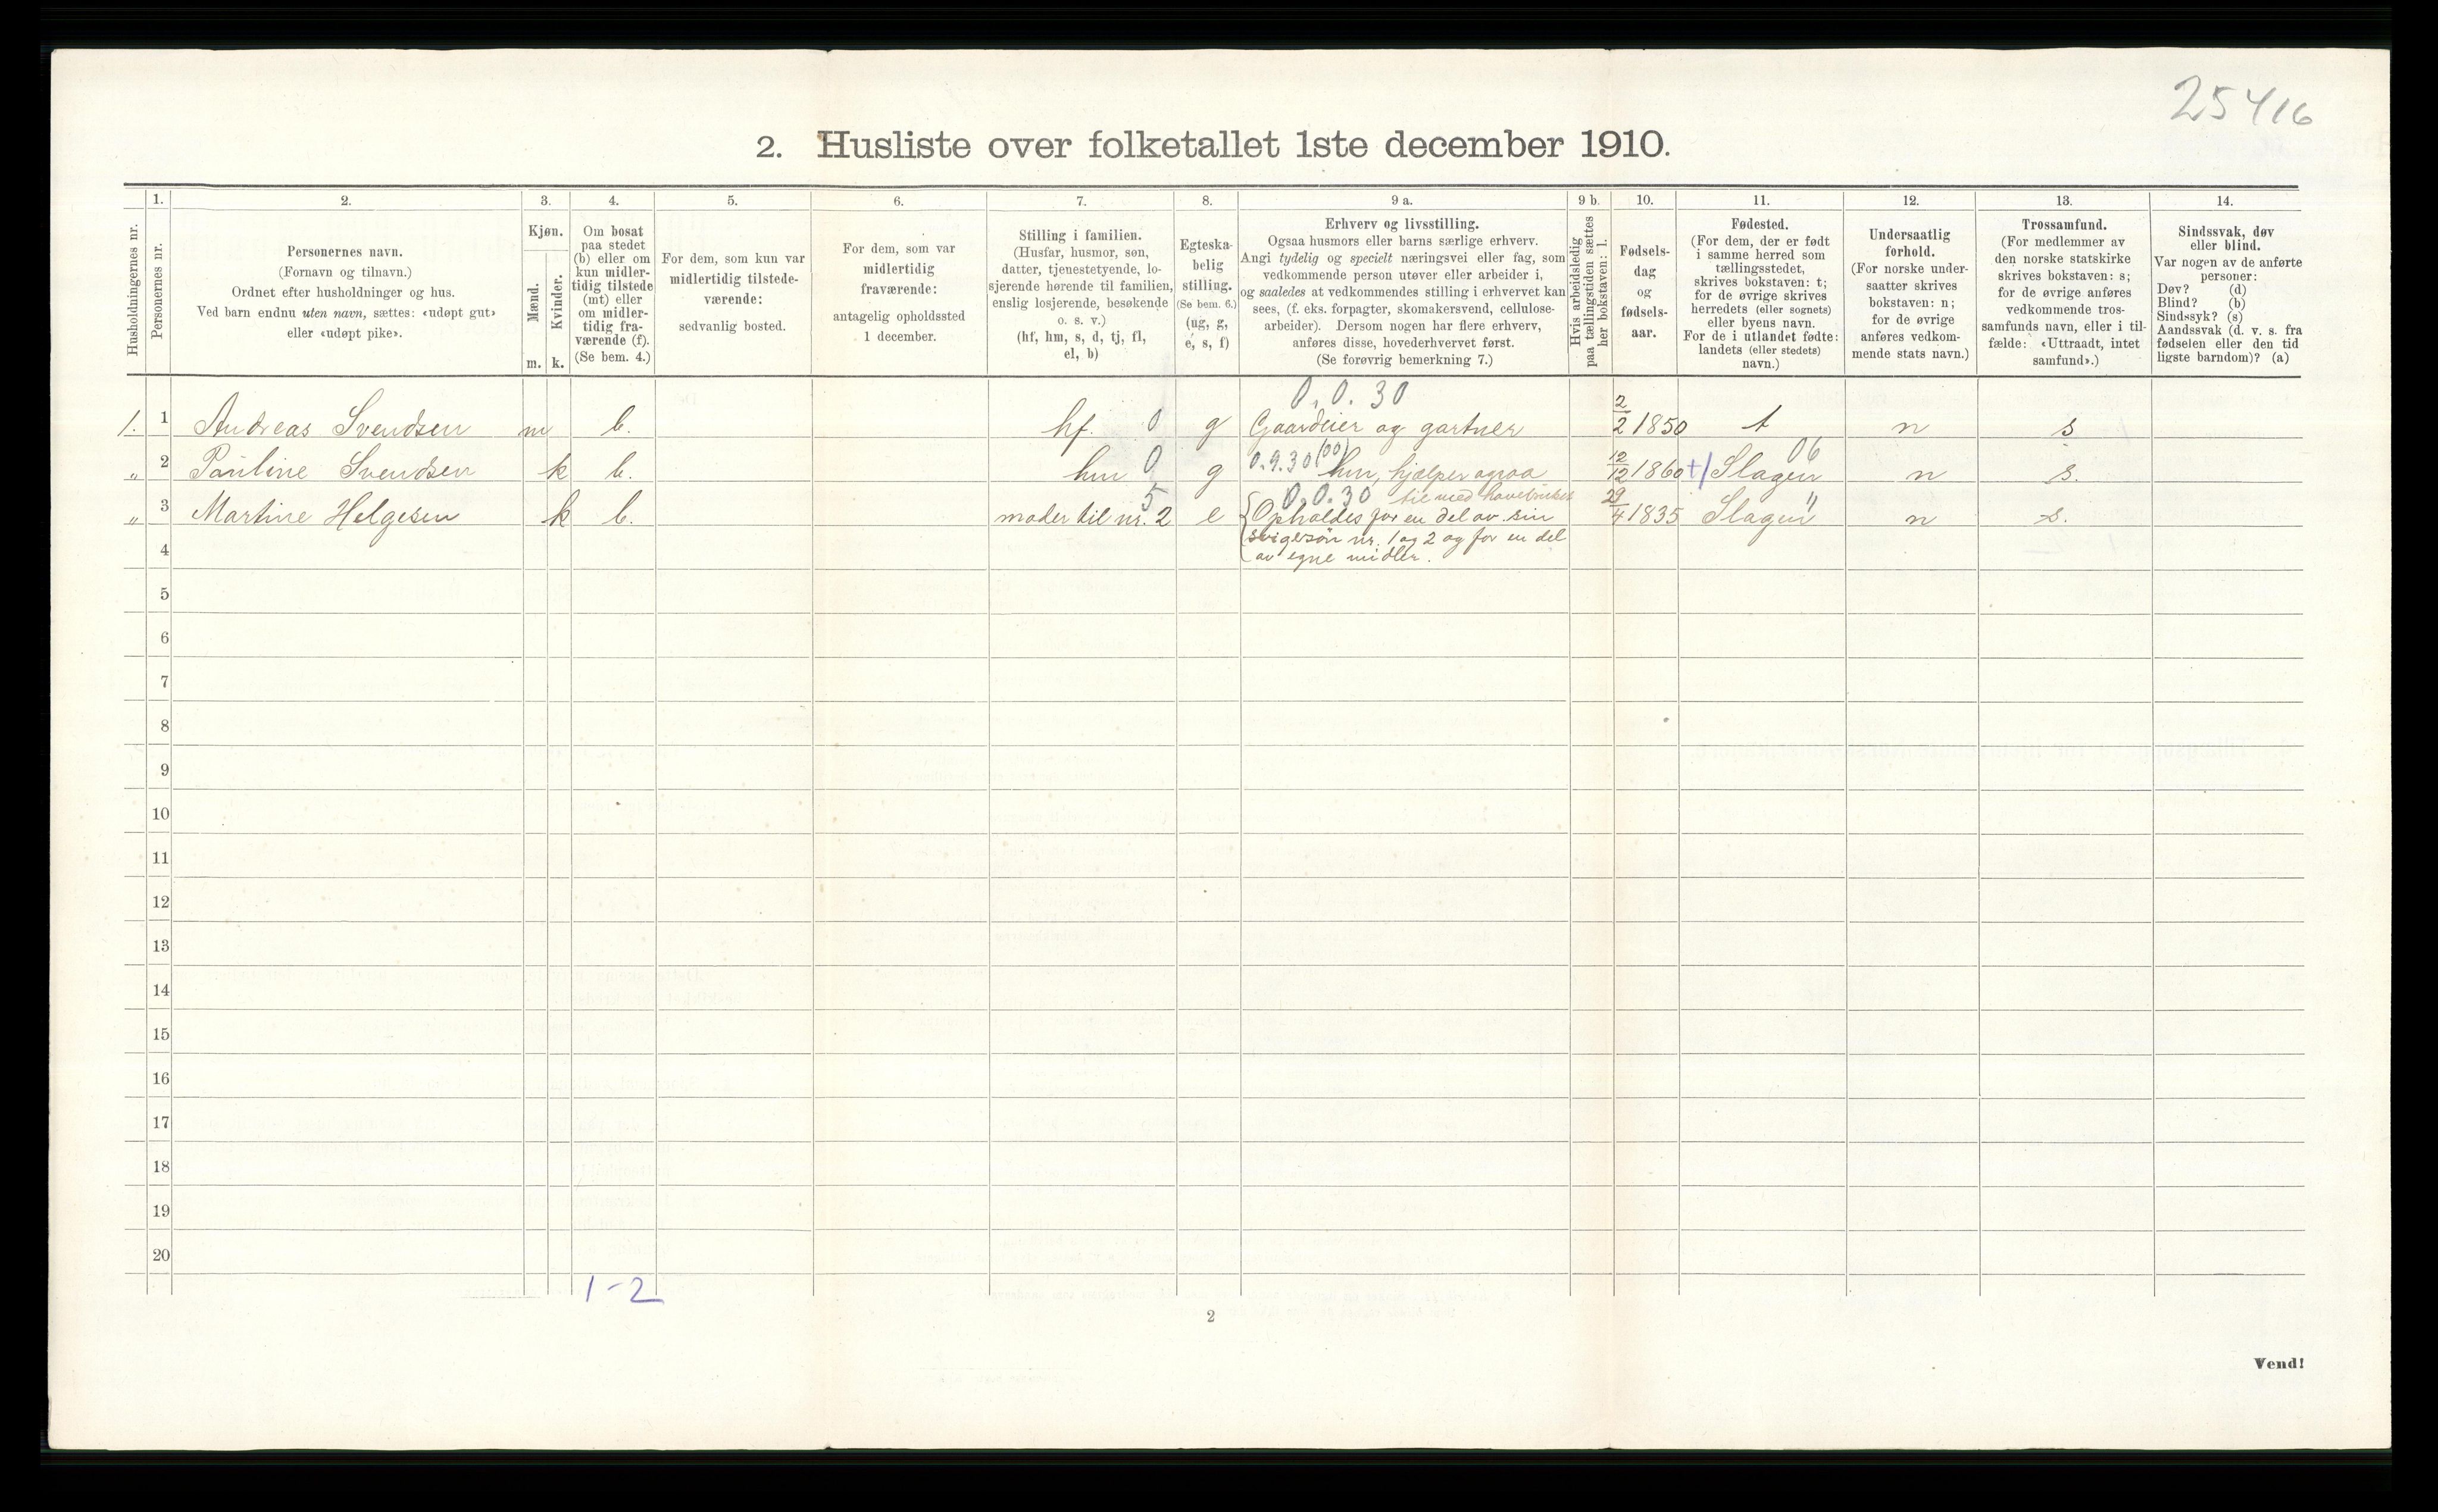 25416
2. Husliste over folketallet 1ste december 1910.
Husholdningernes nr.
1.
Personernes nr.
2.
Personernes navn.
(Fornavn og tilnavn.)
Ordnet efter husholdninger og hus.
Ved barn endnu uten navn, sættes: «udøpt gut»
eller «udøpt pike».
3.
Kjøn.
Mænd.
Kvinder.
m. k.
4.
Om bosat
paa stedet
(b) eller om
kun midler-
tidig tilstede
(mt) eller
om midler-
tidig fra-
værende (f).
(Se bem. 4.)
5.
For dem, som kun var
midlertidig tilstede-
værende:
sedvanlig bosted.
6.
For dem, som var
midlertidig
fraværende:
antagelig opholdssted
1 december.
7.
Stilling i familien.
(Husfar, husmor, søn,
datter, tjenestetyende, lo-
sjerende hørende til familien,
enslig losjerende, besøkende
o. s. v.)
(hf, hm, s, d, tj, fl,
el, b)
8.
Egteska-
belig
stilling.
(Se bem. 6.)
(ug, g,
e, s, f)
9 a.
Erhverv og livsstilling.
Ogsaa husmors eller barns særlige erhverv.
Angi tydelig og specielt næringsvei eller fag, som
vedkommende person utøver eller arbeider i,
og saaledes at vedkommendes stilling i erhvervet kan
sees, (f. eks. forpagter, skomakersvend, cellulose-
arbeider). Dersom nogen har flere erhverv,
anføres disse, hovederhvervet først.
(Se forøvrig bemerkning 7.)
9 b.
Hvis arbeidsledig
paa tællingstiden sættes
her bokstaven: l.
10.
Fødsels-
dag
og
fødsels-
aar.
11.
Fødested.
(For dem, der er født
i samme herred som
tællingsstedet,
skrives bokstaven: t;
for de øvrige skrives
herredets (eller sognets)
eller byens navn.
For de i utlandet fødte:
landets (eller stedets)
navn.)
12.
Undersaatlig
forhold.
(For norske under-
saatter skrives
bokstaven: n;
for de øvrige
anføres vedkom-
mende stats navn.)
13.
Trossamfund.
(For medlemmer av
den norske statskirke
skrives bokstaven: s;
for de øvrige anføres
vedkommende tros-
samfunds navn, eller i til-
fælde: «Uttraadt, intet
samfund».)
14.
Sindssvak, døv
eller blind.
Var nogen av de anførte
personer:
Døv? (d)
Blind? (b)
Sindssyk? (s)
Aandssvak (d. v. s. fra
fødselen eller den tid
ligste barndom)? (a)
0.0.30
1. 1 Andreas Svendsen m b. hf. 0 g Gaardeier og gartner 2/2 1850 t n s
„ 2 Pauline Svendsen k b. hm 0 g 0.9.30 (00) hm, hjælper ogsaa 12/12 1860 t/ Slagen 06 n s.
0.0.30 til med havebruket
„ 3 Martine Helgesen k b. moder til nr. 2 5 e Opholdes for en del av sin 29/4 1835 Slagen " n s.
svigersön nr. 1 og 2 og for en del
4 av egne midler.
5
6
7
8
9
10
11
12
13
14
15
16
17
18
19
20
1-2
2
Vend!